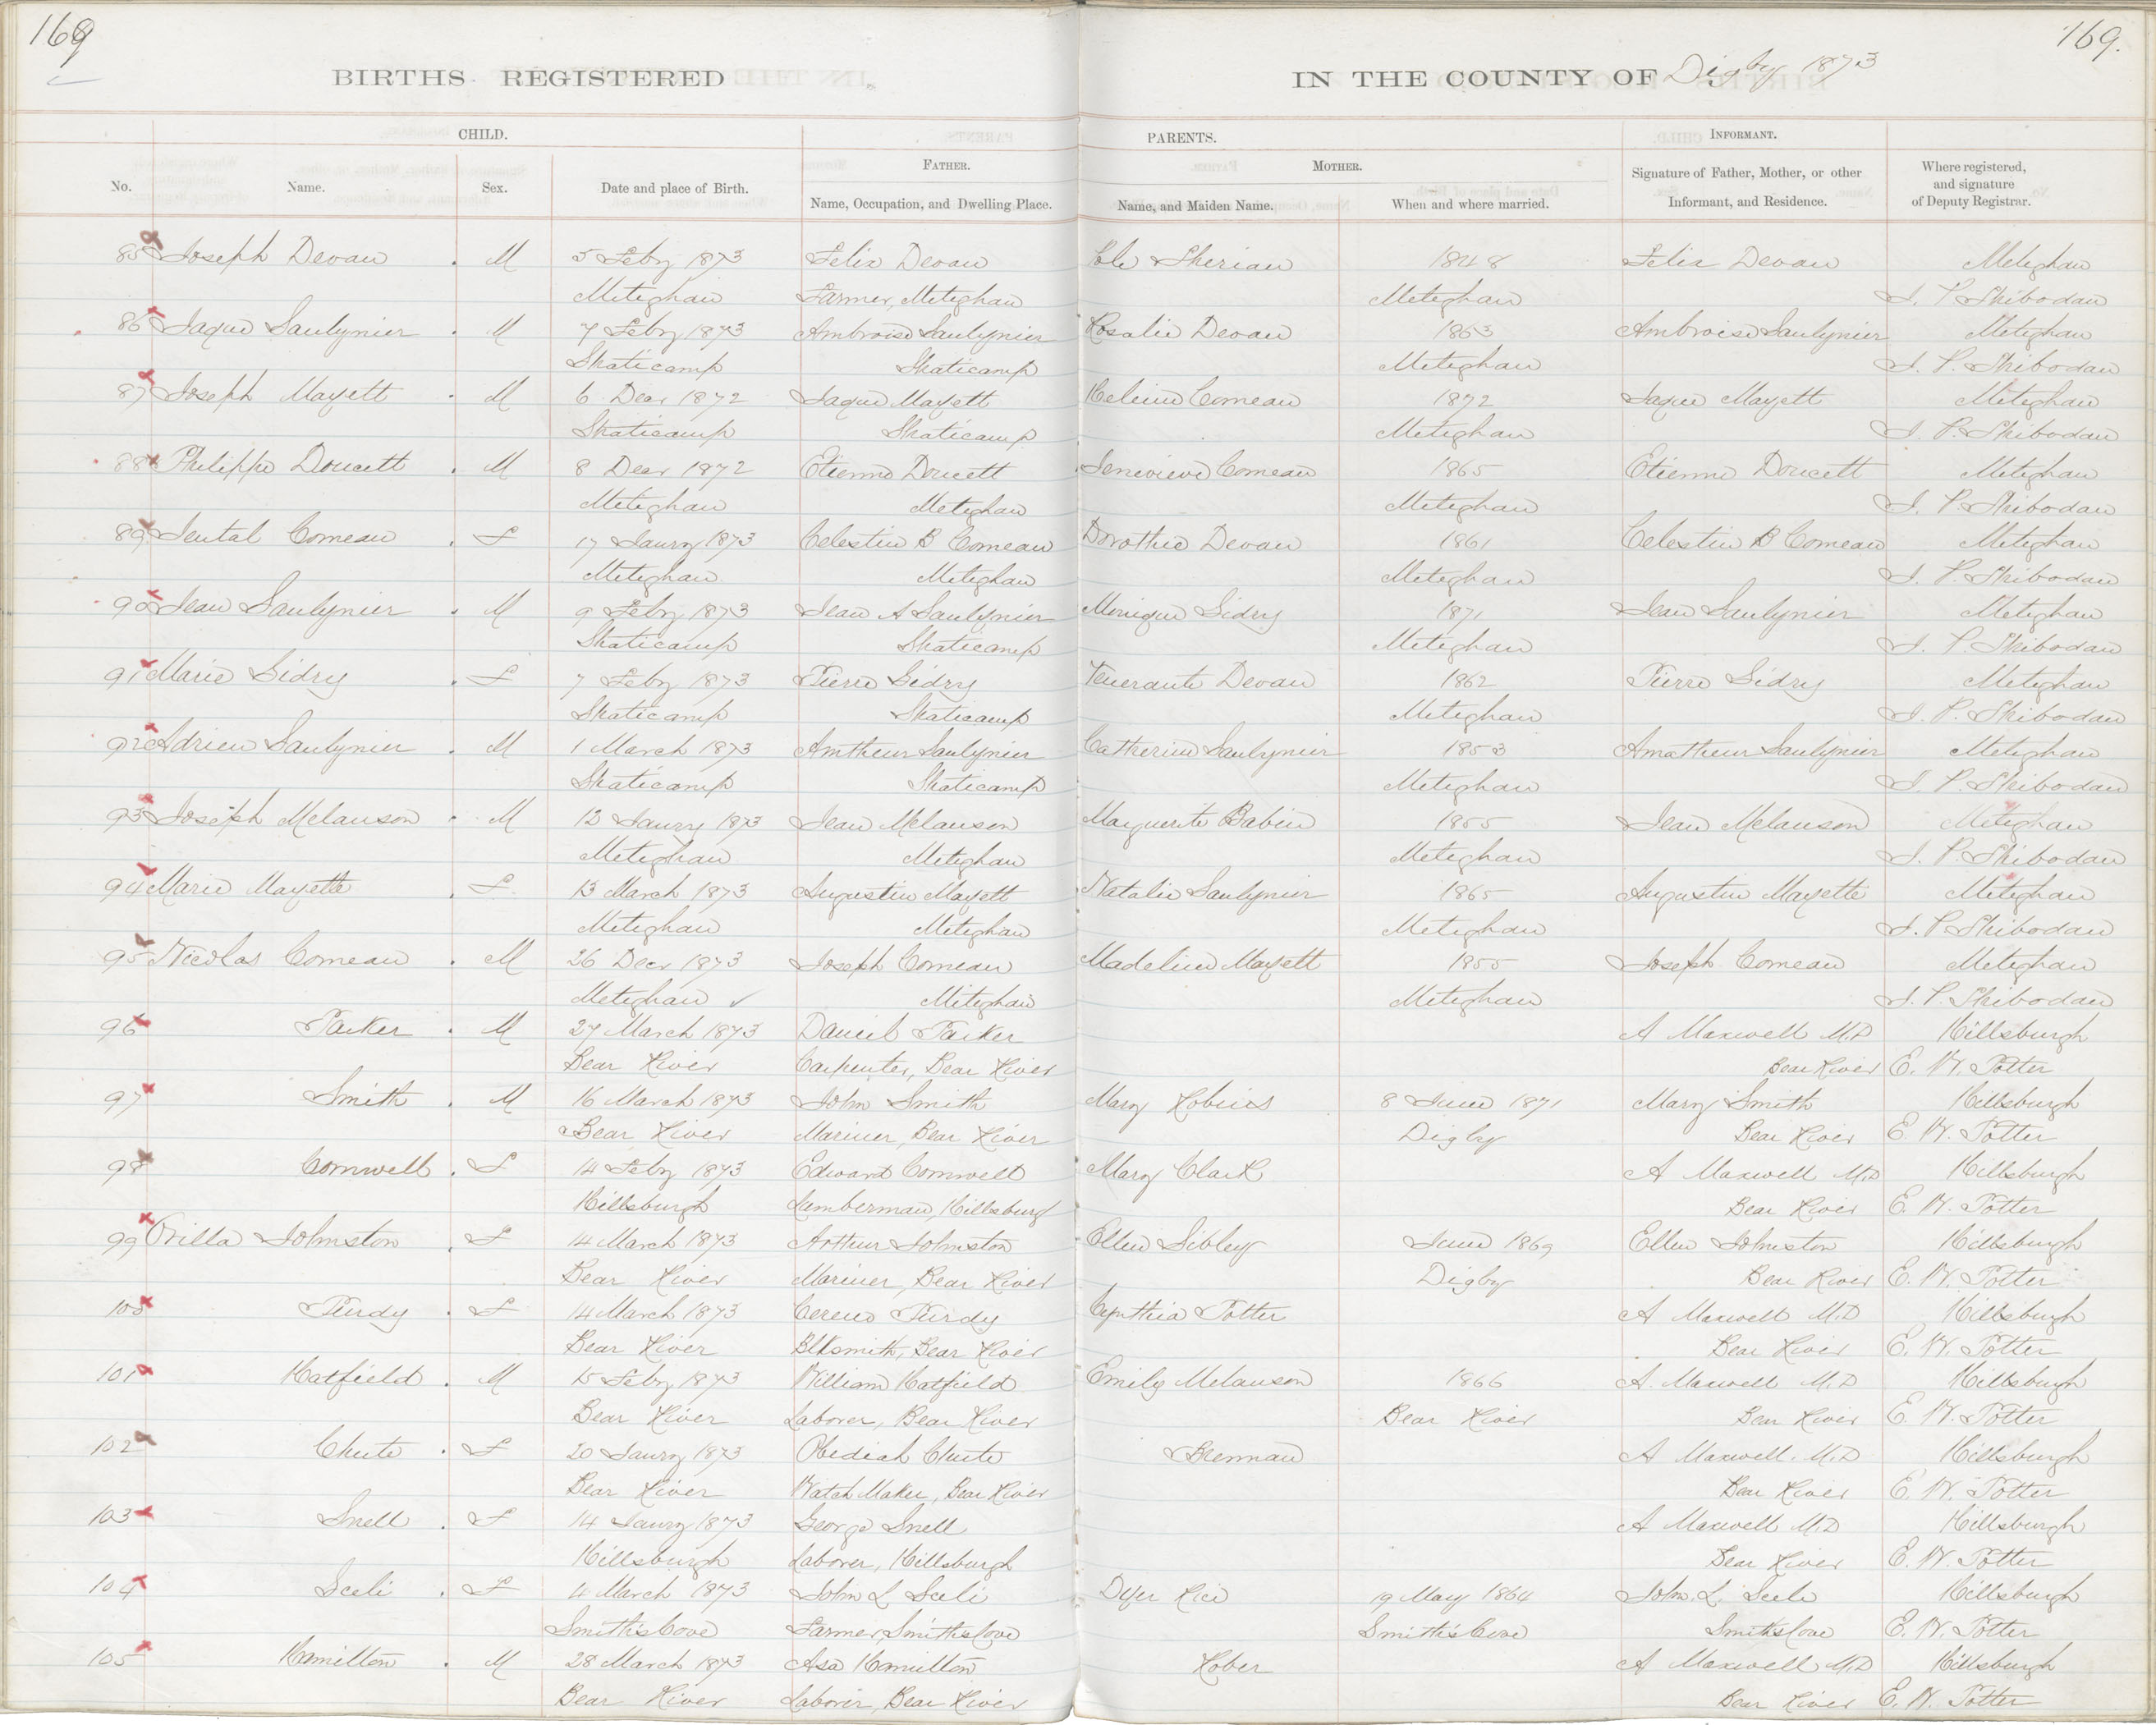 169 169.
BIRTHS REGISTERED IN THE COUNTY OF Digby 1873
CHILD. PARENTS. INFORMANT.
FATHER. MOTHER.
No. Name. Sex. Date and place of Birth. Name, Occupation, and Dwelling Place. Name, and Maiden Name. When and where married. Signature of Father, Mother, or other Informant, and Residence. Where registered, and signature of Deputy Registrar.
85 Joseph Devau M 5 Feby 1873 Felix Devau Sherian 1848 Felix Devau Meteghan
Meteghan Farmer, Meteghan Meteghan J. P. Thibodau
86 Jaque Saulynier M 7 Feby 1873 Ambroise Saulynier Rosalie Devau 1863 Ambroise Saulynier Meteghan
Skaticamp Skaticamp Meteghan J. P. Thibodau
87 Joseph Mayett M 6 Decr 1872 Jaque Mayett Comeau 1872 Jaque Mayett Meteghan
Skaticamp Skaticamp Meteghan J. P. Thibodau
88 Philippe Doucett M 8 Decr 1872 Etienne Doucett Jenevieve Comeau 1865 Etienne Doucett Meteghan
Meteghan Meteghan Meteghan J. P. Thibodau
89 Jental Comeau F 17 Jaury 1873 Celestin B Comeau Dorothie Devau 1861 Celestin B Comeau Meteghan
Meteghan Meteghan Meteghan J. P. Thibodau
90 Jean Saulynier M 9 Feby 1873 Jean A Saulynier Monique Gidry 1871 Jean Saulynier Meteghan
Skaticamp Skaticamp Meteghan J. P. Thibodau
91 Marie Gidry F 7 Feby 1873 Pierre Gidry Venerante Devau 1862 Pierre Gidry Meteghan
Skaticamp Skaticamp Meteghan J. P. Thibodau
92 Adrien Saulynier M 1 March 1873 Amtheur Saulynier Catherine Saulynier 1853 Amatheur Saulynier Meteghan
Skaticamp Skaticamp Meteghan J. P. Thibodau
93 Joseph Melanson M 12 Jaury 1873 Jean Melanson Marguerite Babin 1855 Jean Melanson Meteghan
Meteghan Meteghan Meteghan J. P. Thibodau
94 Marie Mayette F 13 March 1873 Augustin Mayett Natalie Saulynier 1865 Augustin Mayette Meteghan
Meteghan Meteghan Meteghan J. P. Thibodau
95 Nicolas Comeau M 26 Decr 1873 Joseph Comeau Madeline Mayett 1855 Joseph Comeau Meteghan
Meteghan ✓ Meteghan Meteghan J. P. Thibodau
96 Parker M 27 March 1873 Daniel Parker A Maxwell M.D Hillsburgh
Bear River Carpenter, Bear River Bear River E. W. Potter
97 Smith M 16 March 1873 John Smith Mary Robins 8 June 1871 Mary Smith Hillsburgh
Bear River Mariner, Bear River Digby Bear River E. W. Potter
98 Cornwell F 14 Feby 1873 Edward Cornwell Mary Clark A Maxwell M.D Hillsburgh
Hillsburgh Lumberman, Hillsburg Bear River E. W. Potter
99 Orilla Johnston F 14 March 1873 Arthur Johnston Ellen Sibley June 1869 Ellen Johnston Hillsburgh
Bear River Mariner, Bear River Digby Bear River E. W. Potter
100 Purdy F 14 March 1873 Cereno Purdy Cynthia Potter A Maxwell M.D Hillsburgh
Bear River Blksmith, Bear River Bear River E. W. Potter
101 Hatfield M 15 Feby 1873 William Hatfield Emily Melanson 1866 A. Maxwell M.D Hillsburgh
Bear River Laborer, Bear River Bear River Bear River E. W. Potter
102 Chute F 20 Jaury 1873 Obediah Chute Brennan A Maxwell. M.D Hillsburgh
Bear River Watch Maker, Bear River Bear River E. W. Potter
103 Snell F 14 Jaury 1873 George Snell A Maxwell M.D Hillsburgh
Hillsburgh Laborer, Hillsburgh Bear River E. W. Potter
104 Sceli F 4 March 1873 John L Sceli Dyer Rice 19 May 1864 John. L. Scele Hillsburgh
Smith's Cove Farmer, Smith's Cove Smith's Cove Smith's Cove E. W. Potter
105 Hamilton M 28 March 1873 Asa Hamilton Rober A Maxwell M.D Hillsburgh
Bear River Laborer, Bear River Bear River E. W. Potter